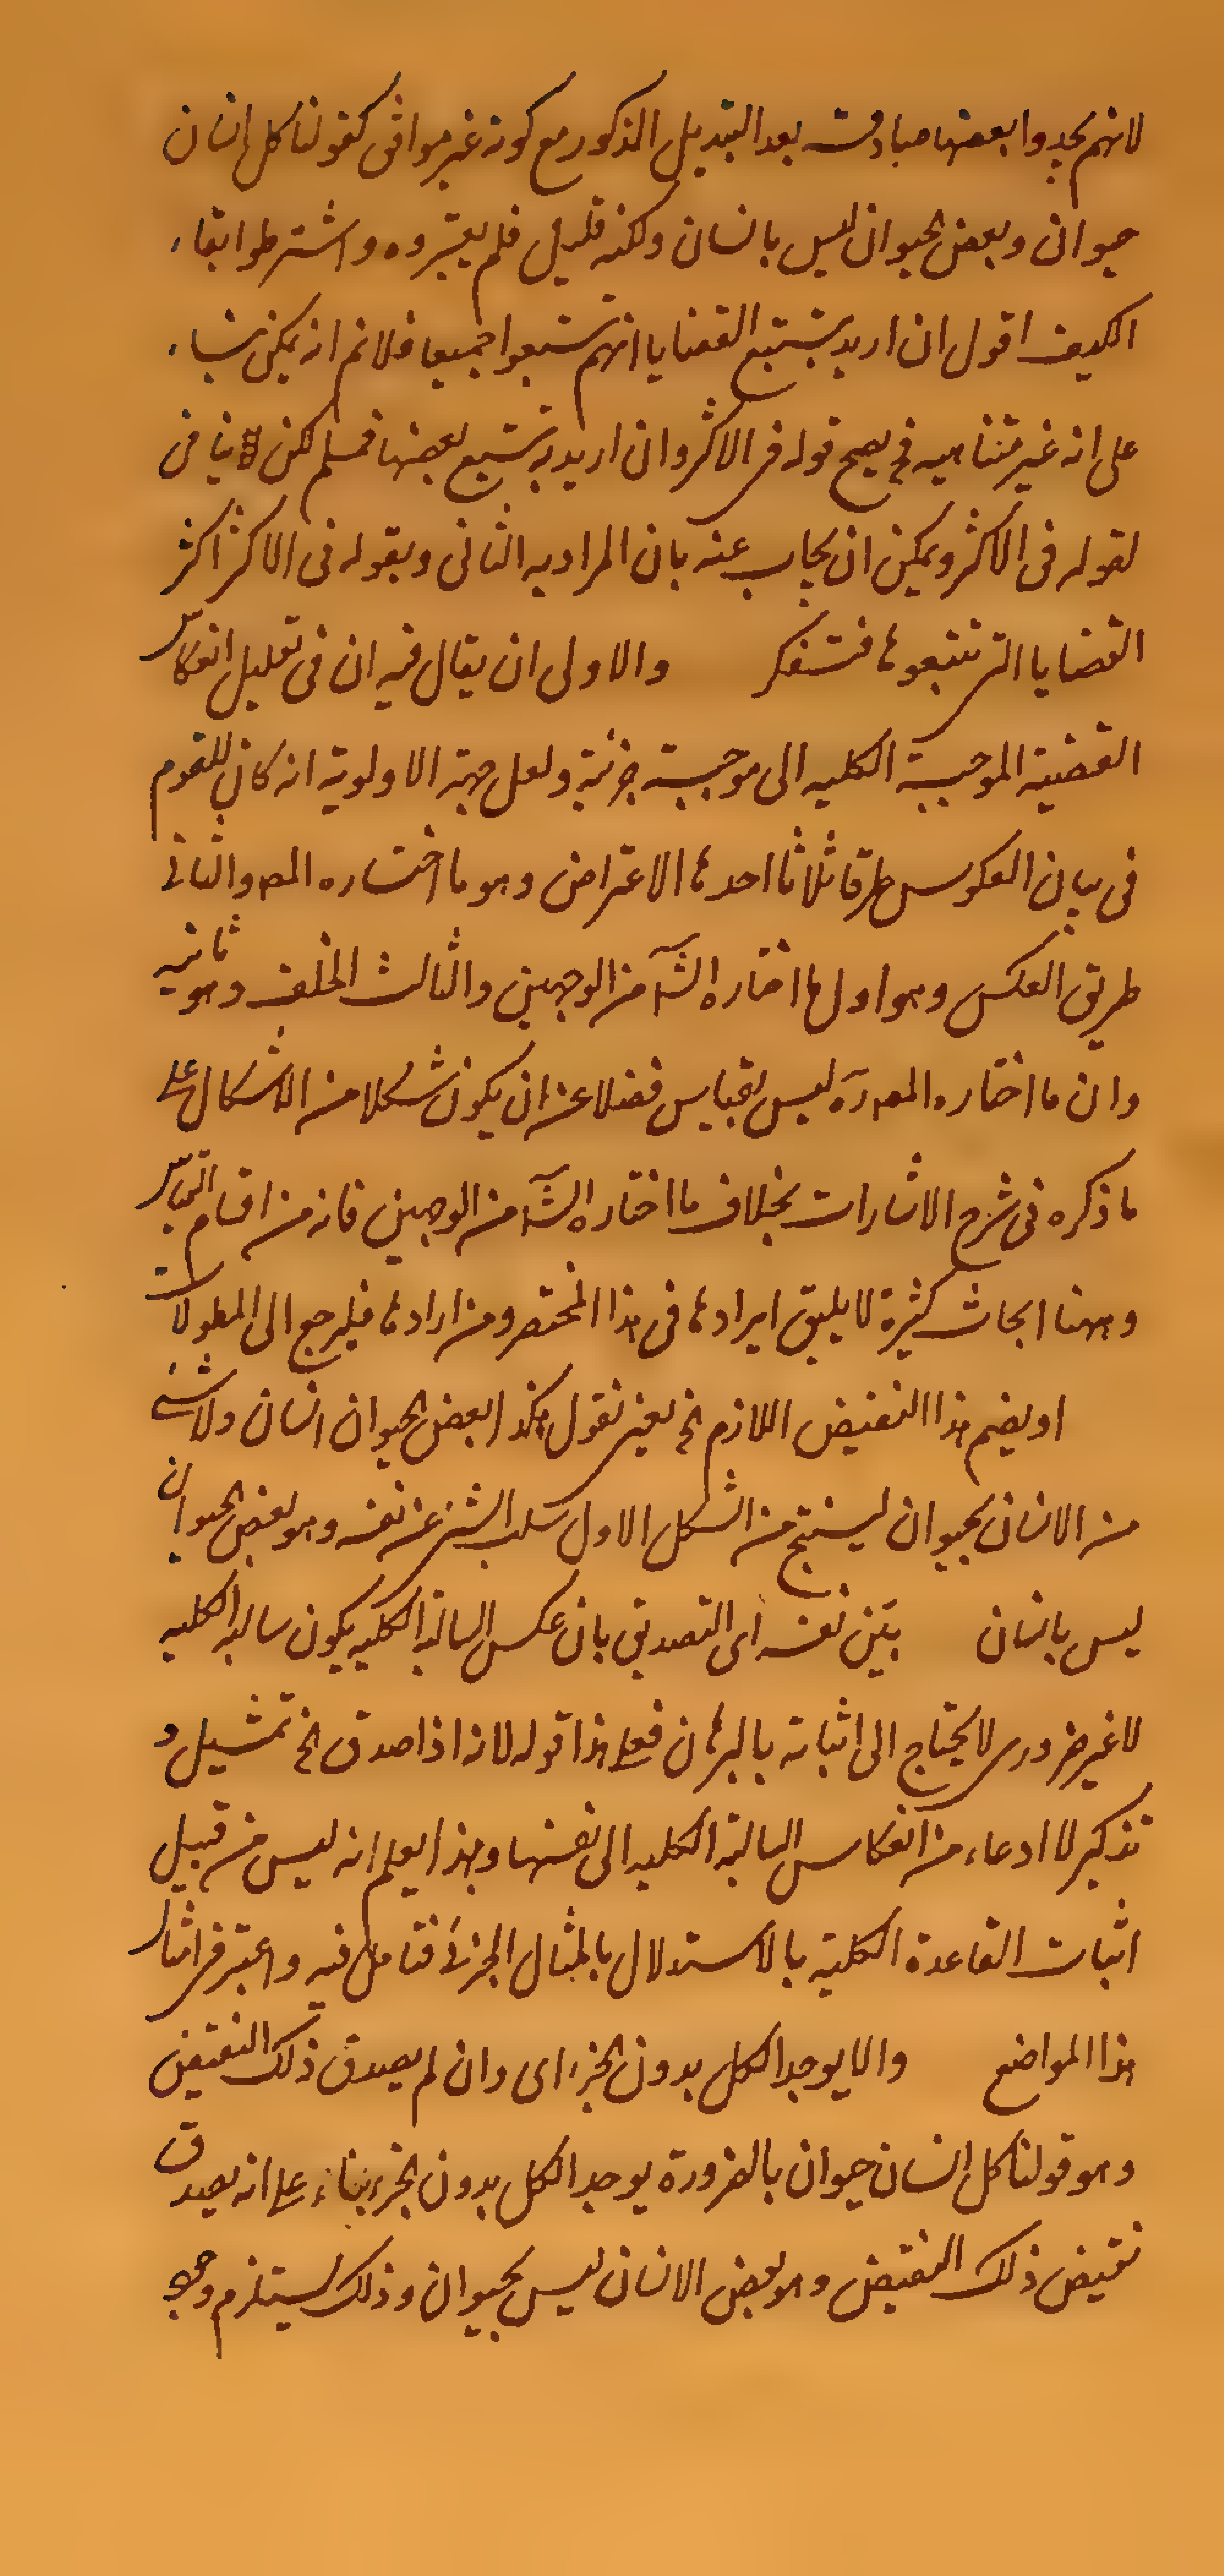 لانهم يجدوا بعضها صادقة بعد التبديل المذكور مع كونه غير موافق كقولنا كل انسان
حيوان وبعض الحيوان ليس بانسان ولكنه قليل فلم يعتبروه واشترطوا بقاء
الكيف اقول ان اريد بتتبع القضايا انهم تتبعوا جميعا فلانم انه يمكن بناء
على انه غير متناهيه فح يصح قوله فى الاكثر وان اريد به تتبع بعضها فمسلم لكن ينافى
لقوله فى الاكثر ويمكن ان يجاب عنه بان المراد به الثانى وبقوله فى الاكثر اكثر
القضايا التى تتبعوها فتفكر والاولى ان يقال فيه ان فى تعليل انعكاس
القضية الموجبة الكليه الى موجبة جزئية ولعل جهة الاولوية انه كان للقوم
فى بيان العكوس طرقا ثلاثا احدها الاعتراض وهو ما اختاره المص والثانى
طريق العكس وهو اول ما اختاره الش من الوجهين والثالث الخلف وهو ثانيه
وان ما اختاره المص ره ليس بقياس فضلا عن ان يكون شكلا من الاشكال على
ما ذكره فى شرح الاشارات بخلاف ما اختاره الش من الوجهين فانه من اقسام القياس
وههنا ابحاث كثيرة لا يليق ايرادها فى هذا المختصر ومن ارادها فليرجع الى المطولات
او يضم هذا النقيض اللازم الخ يعنى نقول هكذا بعض الحيوان انسان ولا شئ
من الانسان بحيوان لينتج من الشكل الاول سلب الشئ عن نفسه وهو بعض الحيوان
ليس بانسان بيّن نفسه اى التصديق بان عكس السالبة الكليه يكون سالبه الكليه
لا غير ضرورى لا يحتاج الى اثباته بالبرهان فعلى هذا قوله لانه اذا صدق الخ تمثيل و
تذكير لا ادعاء من انعكاس السالبة الكليه الى نفسها وبهذا يعلم انه ليس من قبيل
اثبات القاعدة الكلية بالاستدلال بالمثال الجزئى فتامل فيه واعتبر فى امثال
هذا المواضع والا يوجد الكل بدون الجزء اى وان لم يصدق ذلك النقيض
وهو قولنا كل انسان حيوان بالضرورة يوجد الكل بدون الجزء بناء على انه يصدق
نقيض ذلك النقيض وهو بعض الانسان ليس بحيوان وذلك يستلزم وجود